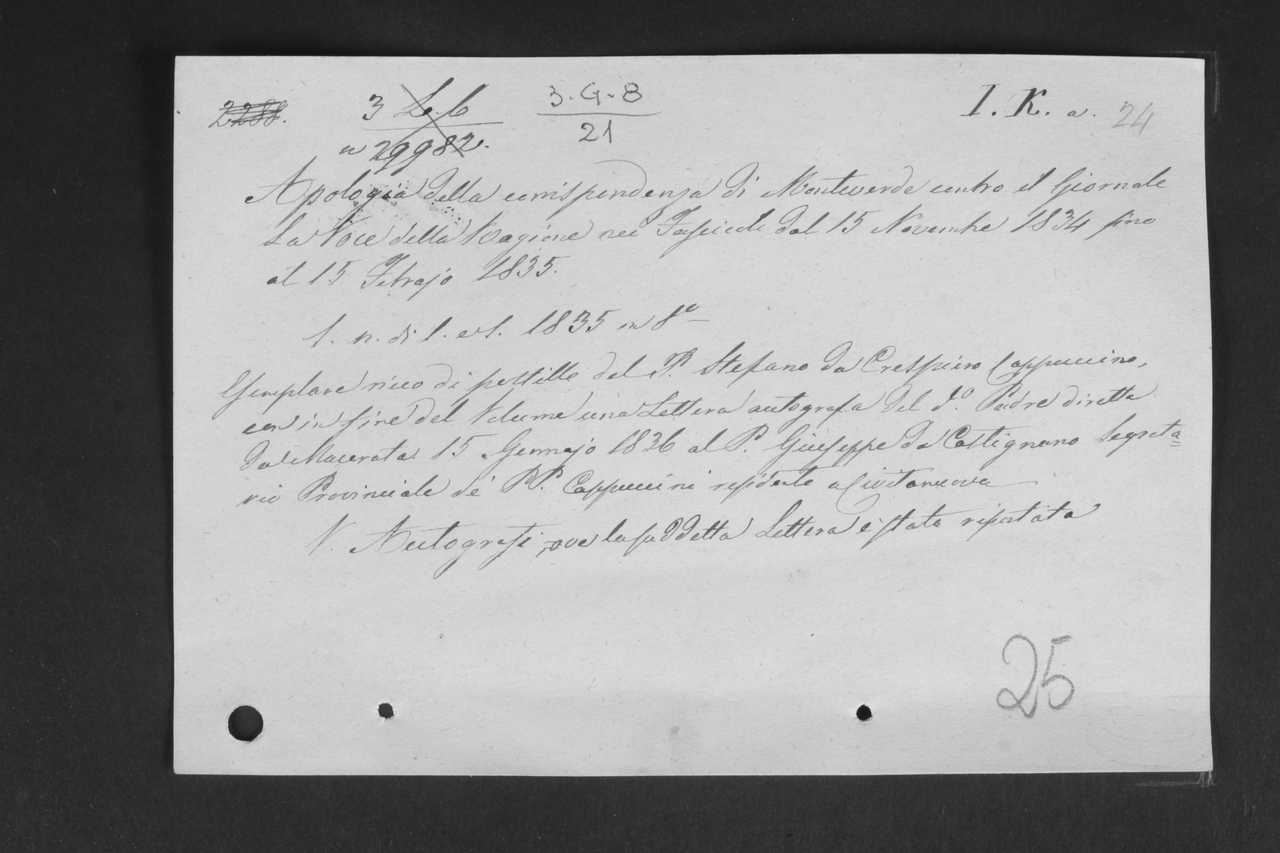 2288. 3 L. C 3-G-8 I. K. a. 24
n 29982. 21
Apologia della corrispondenza di Monteverde contro il Giornale
La Voce della Ragione nei Fascicoli dal 15 Novembre 1834 fino
al 15 Febrajo 1835.
S. n. di l. e s. 1835 in 8°
Esemplare ricco di postille del P. Stefano da Crespiero Cappuccino,
con in fine del Volume una Lettera autografa del d.° Padre diretta
da Macerata 15 Gennajo 1836 al P. Giuseppe da Castignano Segreta=
rio Provinciale de' PP. Cappuccini residente a Civitanuova
V. Autografi, ove la suddetta Lettera è stata riportata
25